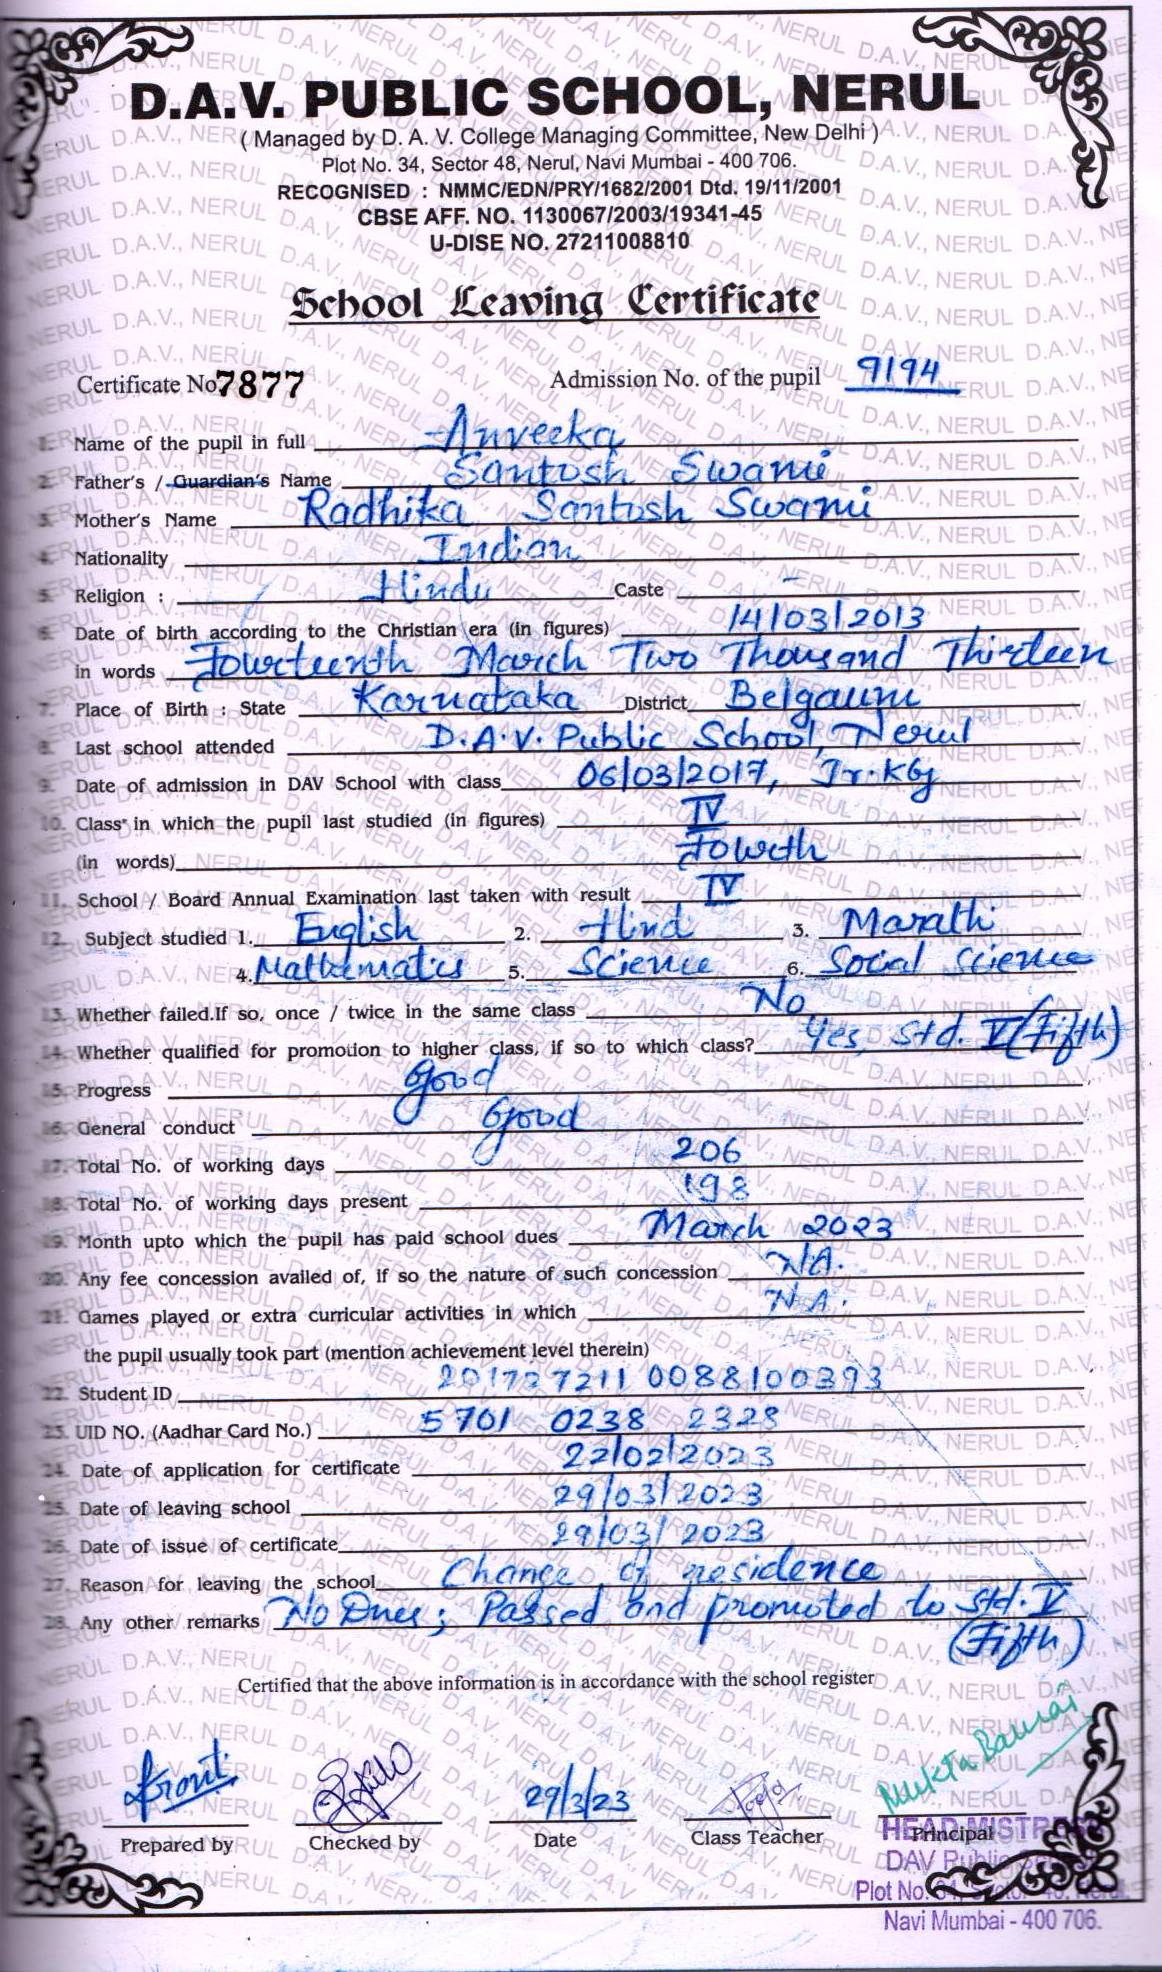 D.A.V. PUBLIC SCHOOL, NERUL
( Managed by D. A. V. College Managing Committee, New Delhi )
Plot No. 34, Sector 48, Nerul, Navi Mumbai - 400 706.
RECOGNISED : NMMC/EDN/PRY/1682/2001 Dtd. 19/11/2001
CBSE AFF. NO. 1130067/2003/19341-45
U-DISE NO. 27211008810
School Leaving Certificate
Certificate No 7877 Admission No. of the pupil 9194
1. Name of the pupil in full Anveeka
2. Father's / Guardian's Name Santosh Swami
3. Mother's Name Radhika Santosh Swami
4. Nationality Indian
5. Religion : Hindu Caste -
6. Date of birth according to the Christian era (in figures) 14/03/2013
in words Fourteenth March Two Thousand Thirteen
7. Place of Birth : State Karnataka District Belgaum
8. Last school attended D.A.V. Public School, Nerul
9. Date of admission in DAV School with class 06/03/2017, Jr.KG
10. Class in which the pupil last studied (in figures) IV
(in words) Fourth
11. School / Board Annual Examination last taken with result IV
12. Subject studied 1. English 2. Hind 3. Marathi
4. Mathematics 5. Science 6. Social Science
13. Whether failed.If so, once / twice in the same class No
14. Whether qualified for promotion to higher class, if so to which class? Yes, Std. V (Fifth)
15. Progress Good
16. General conduct Good
17. Total No. of working days 206
18. Total No. of working days present 198
19. Month upto which the pupil has paid school dues March 2023
20. Any fee concession availed of, if so the nature of such concession NA.
21. Games played or extra curricular activities in which N.A.
the pupil usually took part (mention achievement level therein)
22. Student ID 2017272110088100393
23. UID NO. (Aadhar Card No.) 5701 0238 2328
24. Date of application for certificate 22/02/2023
25. Date of leaving school 29/03/2023
26. Date of issue of certificate 29/03/2023
27. Reason for leaving the school Change of residence
28. Any other remarks No Dues; Passed and promoted to Std. V
(Fifth)
Certified that the above information is in accordance with the school register
29/3/23 Mukta
Prepared by Checked by Date Class Teacher Principal
HEAD MISTRESS
DAV Public School
Plot No. 34, Sector 48, Nerul,
Navi Mumbai - 400 706.